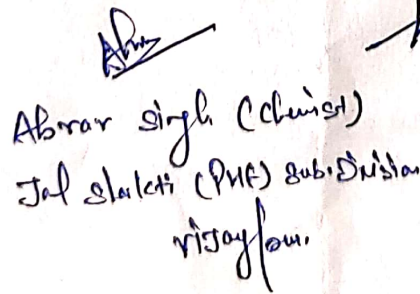 Abrar Singh (Chemist)
Jal Shakti (PHE) Sub. Division
Vijaypur.